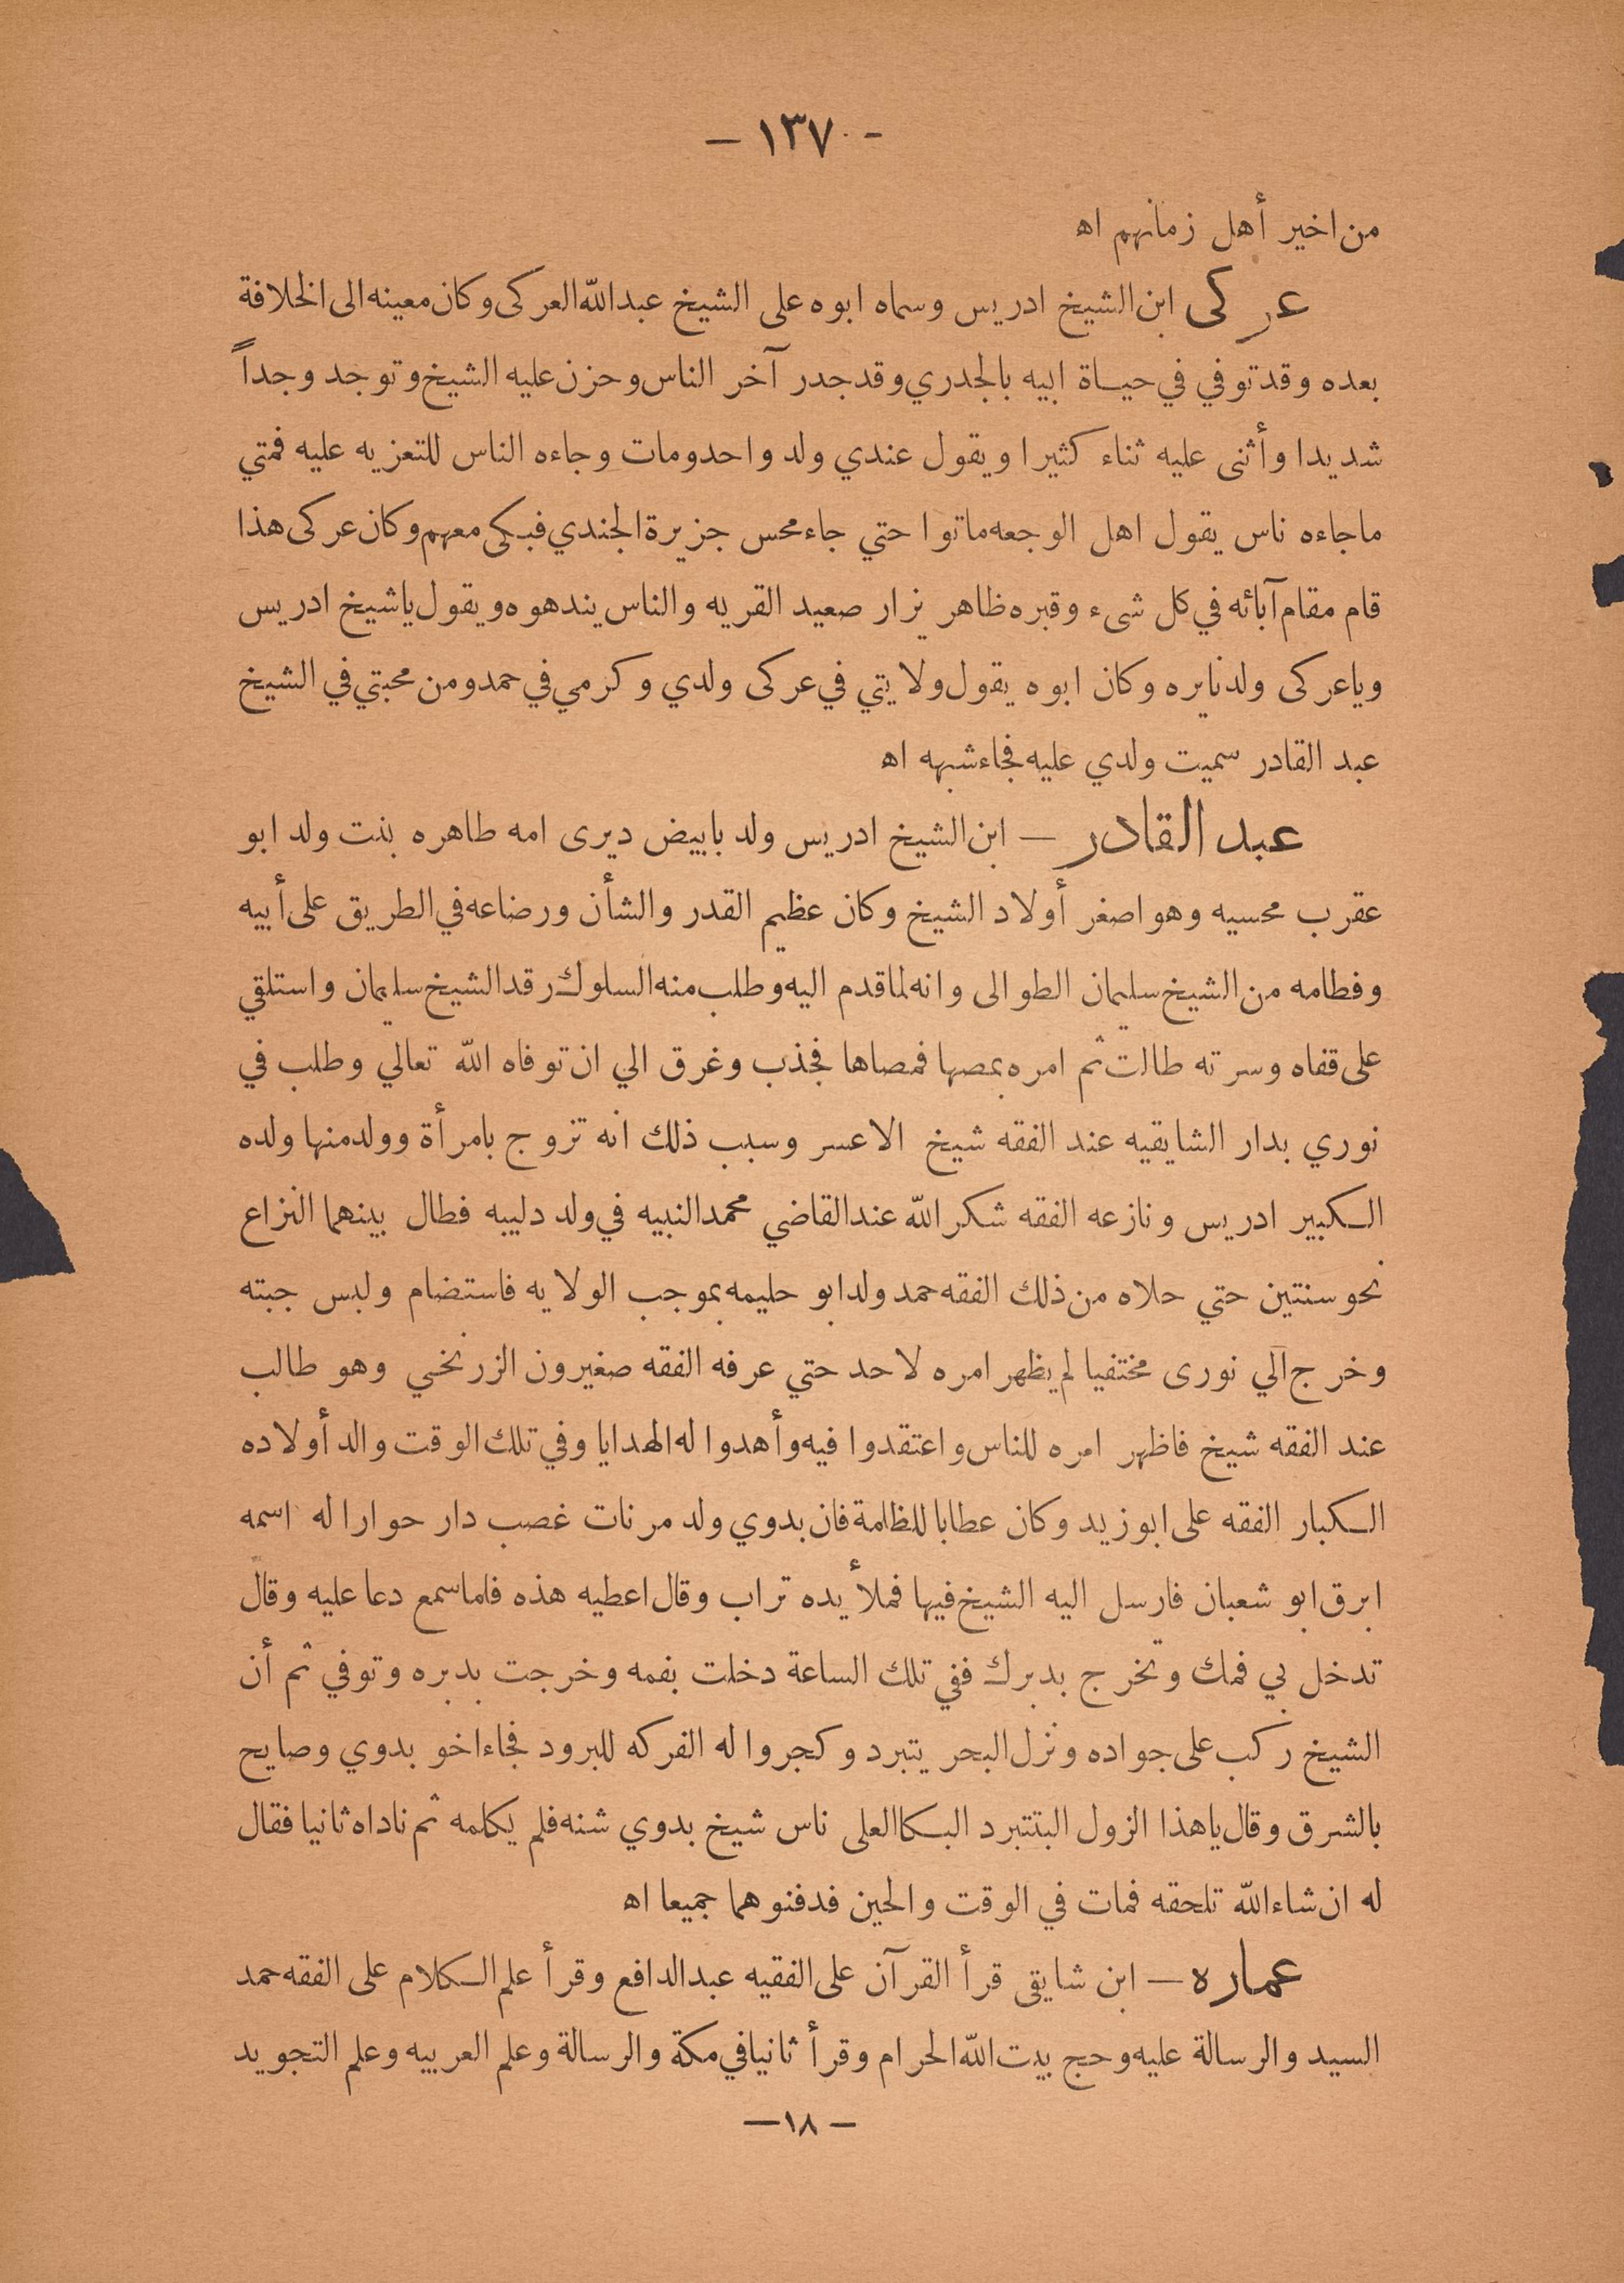 — ١٣٧ —
من اخير أهل زمانهم اه
عركى ابن الشيخ ادريس وسماه ابوه على الشيخ عبد الله العركى وكان معينه الى الخلافة
بعده وقد توفي في حياة ابيه بالجدري وقد جدر آخر الناس وحزن عليه الشيخ وتوجد وجداً
شديدا وأثنى عليه ثناء كثيرا ويقول عندي ولد واحد ومات وجاءه الناس للتعزيه عليه فمتي
ماجاءه ناس يقول اهل الوجعه ماتوا حتي جاء محس جزيرة الجندي فبكى معهم وكان عركى هذا
قام مقام آبائه في كل شىء وقبره ظاهر يزار صعيد القريه والناس يندهوه ويقول ياشيخ ادريس
وياعركى ولد نايره وكان ابوه يقول ولايتي في عركى ولدي وكرمي في حمد ومن محبتي في الشيخ
عبد القادر سميت ولدي عليه فجاء شبهه اه
عبد القادر — ابن الشيخ ادريس ولد بابيض ديرى امه طاهره بنت ولد ابو
عقرب محسيه وهو اصغر أولاد الشيخ وكان عظيم القدر والشأن ورضاعه في الطريق على أبيه
وفطامه من الشيخ سليمان الطوالى وانه لما قدم اليه وطلب منه السلوك رقد الشيخ سليمان واستلقي
على قفاه وسرته طالت ثم امره بمصها فمصاها فجذب وغرق الي ان توفاه الله تعالي وطلب في
نوري بدار الشايقيه عند الفقه شيخ الاعسر وسبب ذلك انه تزوج بامرأة وولد منها ولده
الكبير ادريس ونازعه الفقه شكر الله عند القاضي محمد النبيه في ولد دليبه فطال بينهما النزاع
نحو سنتين حتي حلاه من ذلك الفقه حمد ولد ابو حليمه بموجب الولايه فاستضام ولبس جبته
وخرج الي نورى مختفيا لم يظهر امره لاحد حتي عرفه الفقه صغيرون الزرنخي وهو طالب
عند الفقه شيخ فاظهر امره للناس واعتقدوا فيه وأهدوا له الهدايا وفي تلك الوقت والد أولاده
الكبار الفقه على ابوزيد وكان عطابا للظلمة فان بدوي ولد مرنات غصب دار حوارا له اسمه
ابرق ابو شعبان فارسل اليه الشيخ فيها فملأ يده تراب وقال اعطيه هذه فلما سمع دعا عليه وقال
تدخل بي فمك وتخرج بدبرك ففي تلك الساعة دخلت بفمه وخرجت بدبره وتوفي ثم أن
الشيخ ركب على جواده ونزل البحر يتبرد وكجروا له الفركه للبرود فجاء اخو بدوي وصايح
بالشرق وقال ياهذا الزول البتتبرد البكا العلى ناس شيخ بدوي شنه فلم يكلمه ثم ناداه ثانيا فقال
له ان شاء الله تلحقه فمات في الوقت والحين فدفنوهما جميعا اه
عماره — ابن شايقى قرأ القرآن على الفقيه عبد الدافع وقرأ علم الكلام على الفقه حمد
السيد والرسالة عليه وحج بيت الله الحرام وقرأ ثانيا في مكة والرسالة وعلم العربيه وعلم التجويد
— ١٨ —